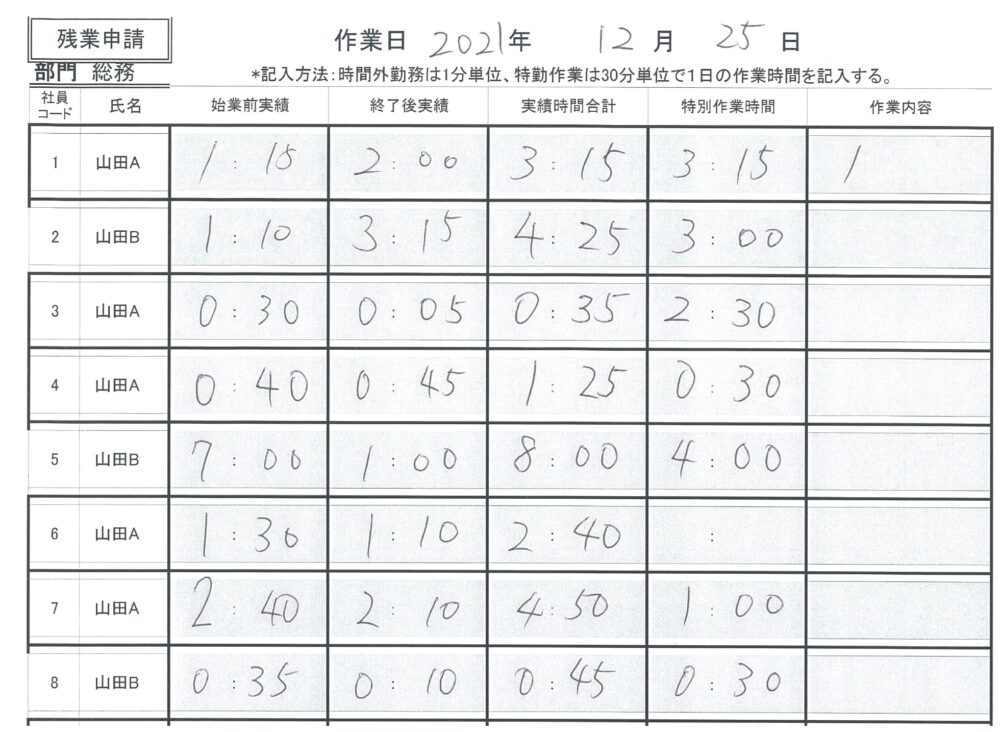 残業申請 作業日 2021年 12月 25日
部門 総務 *記入方法:時間外勤務は1分単位、特勤作業は30分単位で1日の作業時間を記入する。
社員コード 氏名 始業前実績 終了後実績 実績時間合計 特別作業時間 作業内容
1 山田A 1:15 2:00 3:15 3:15 1
2 山田B 1:10 3:15 4:25 3:00
3 山田A 0:30 0:05 0:35 2:30
4 山田A 0:40 0:45 1:25 0:30
5 山田B 7:00 1:00 8:00 4:00
6 山田A 1:30 1:10 2:40 :
7 山田A 2:40 2:10 4:50 1:00
8 山田B 0:35 0:10 0:45 0:30